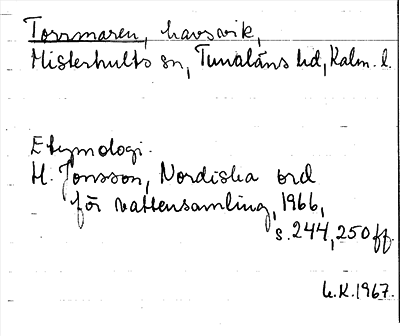 Torrmaren, havsvik,
Misterhults sn, Tunaläns hd, Kalm. l.
Etymologi.
H. Jonsson, Nordiska ord
för vattensamling, 1966,
s. 244, 250 ff.
L.K. 1967.